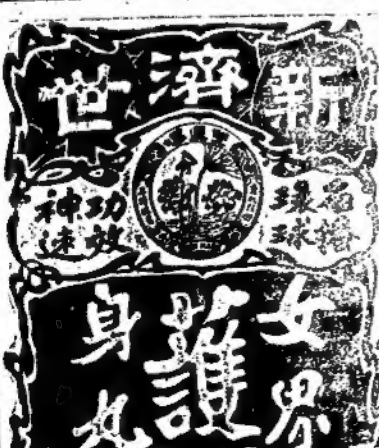 新濟世
環球
功效
神速
女界
護
身丸